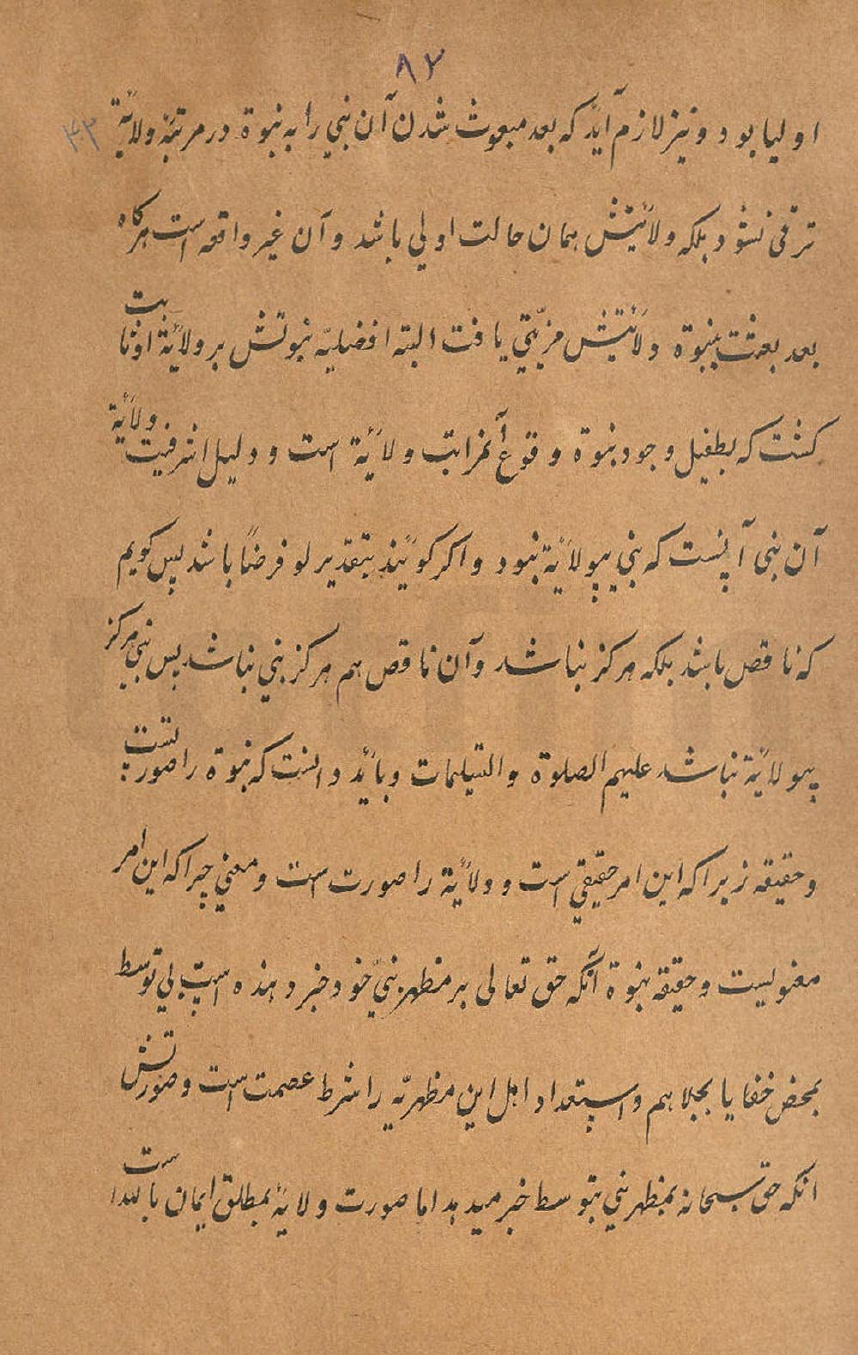 ۸۲
۴۲
اولیا بود و نیز لازم آید که بعد مبعوث شدن آن نبی را به نبوة در مرتبهٔ ولایة
ترقی نشود بلکه ولایتش همان حالت اولی باشد و آن غیر واقعه است هرکاه
بعد بعثت بنبوة ولایتش مزیتی یافت البته افضلیه نبوتش بر ولایة او ثابت
کشت که بطفیل وجود نبوة وقوع آنمراتب ولایة است و دلیل اشرفیت ولایة
آن نبی آنست که نبی بیولایة نبود و اکر کویند بتقدیر لو فرضاً باشد پس کویم
که ناقص باشد بلکه هرکز نباشد و آن ناقص هم هرکز نبی نباشد پس نبی هرکز
بیولایة نباشد علیهم الصلوة والتسلیمات و باید دانست که نبوة را صورتست
و حقیقه زیرا که این امر حقیقی است و ولایة را صورت است و معنی چرا که این امر
معنویست و حقیقه نبوة آنکه حق تعالی بر مظهر نبی خود خبر دهنده است بی توسط
بمحض خفا یا بجلا هم و استعداد اهل این مظهریه را شرط عصمت است و صورتش
انکه حق سبحانه بمظهر نبی بتوسط خبر میدهد اما صورت ولایة بمطلق ایمان بالله است